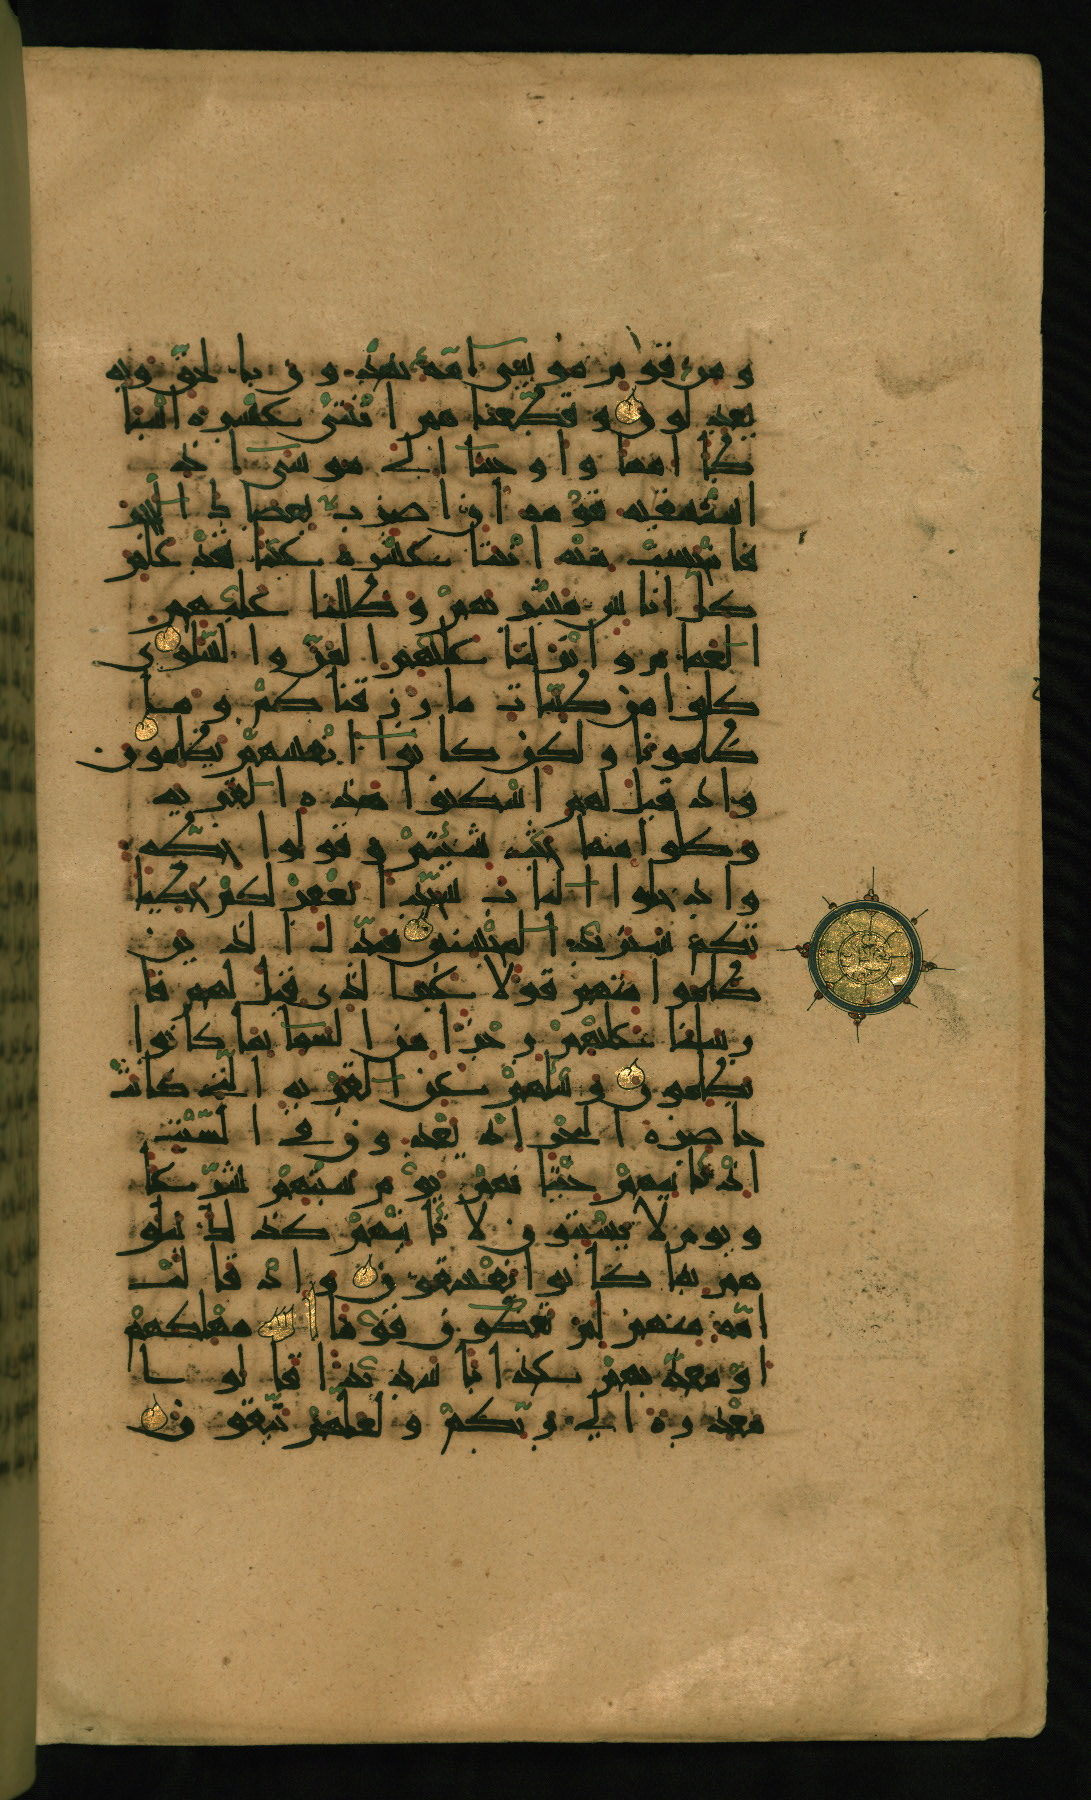 ومن قوم موسى امة يهدون بالحق وبه
يعدلون وقطعنهم اثنتى عشرة اسبا
طا امما واوحينا الى موسى اذ
استسقيه قومه ان اضرب بعصاك الحجر
فانبجست منه اثنتا عشرة عينا قد علم
كل اناس مشربهم وظللنا عليهم
الغمام وانزلنا عليهم المن والسلوى
كلوا من طيبات ما رزقناكم وما
ظلمونا ولكن كانوا انفسهم يظلمون
واذ قيل لهم اسكنوا هذه القرية
وكلوا منها حيث شئتم وقولوا حطة
وادخلوا الباب سجدا نغفر لكم خطيا
تكم سنزيد المحسنين فبدل الذين
ظلموا منهم قولا غير الذى قيل لهم فا
رسلنا عليهم رجزا من السما بما كانوا
يظلمون وسلهم عن القرية التى كانت
حاضرة البحر اذ يعدون فى السبت
اذ تاتيهم حيتانهم يوم سبتهم شرعا
ويوم لا يسبتون لا تاتيهم كذلك نبلو
هم بما كانوا يفسقون واذ قالت
امة منهم لم تعظون قوما الله مهلكهم
او معذبهم عذابا شديدا قالوا
معذرة الى ربكم ولعلهم يتقون